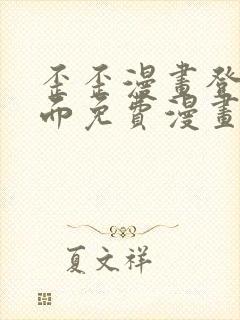 歪歪漫畫登
而免費漫畫
夏文祥